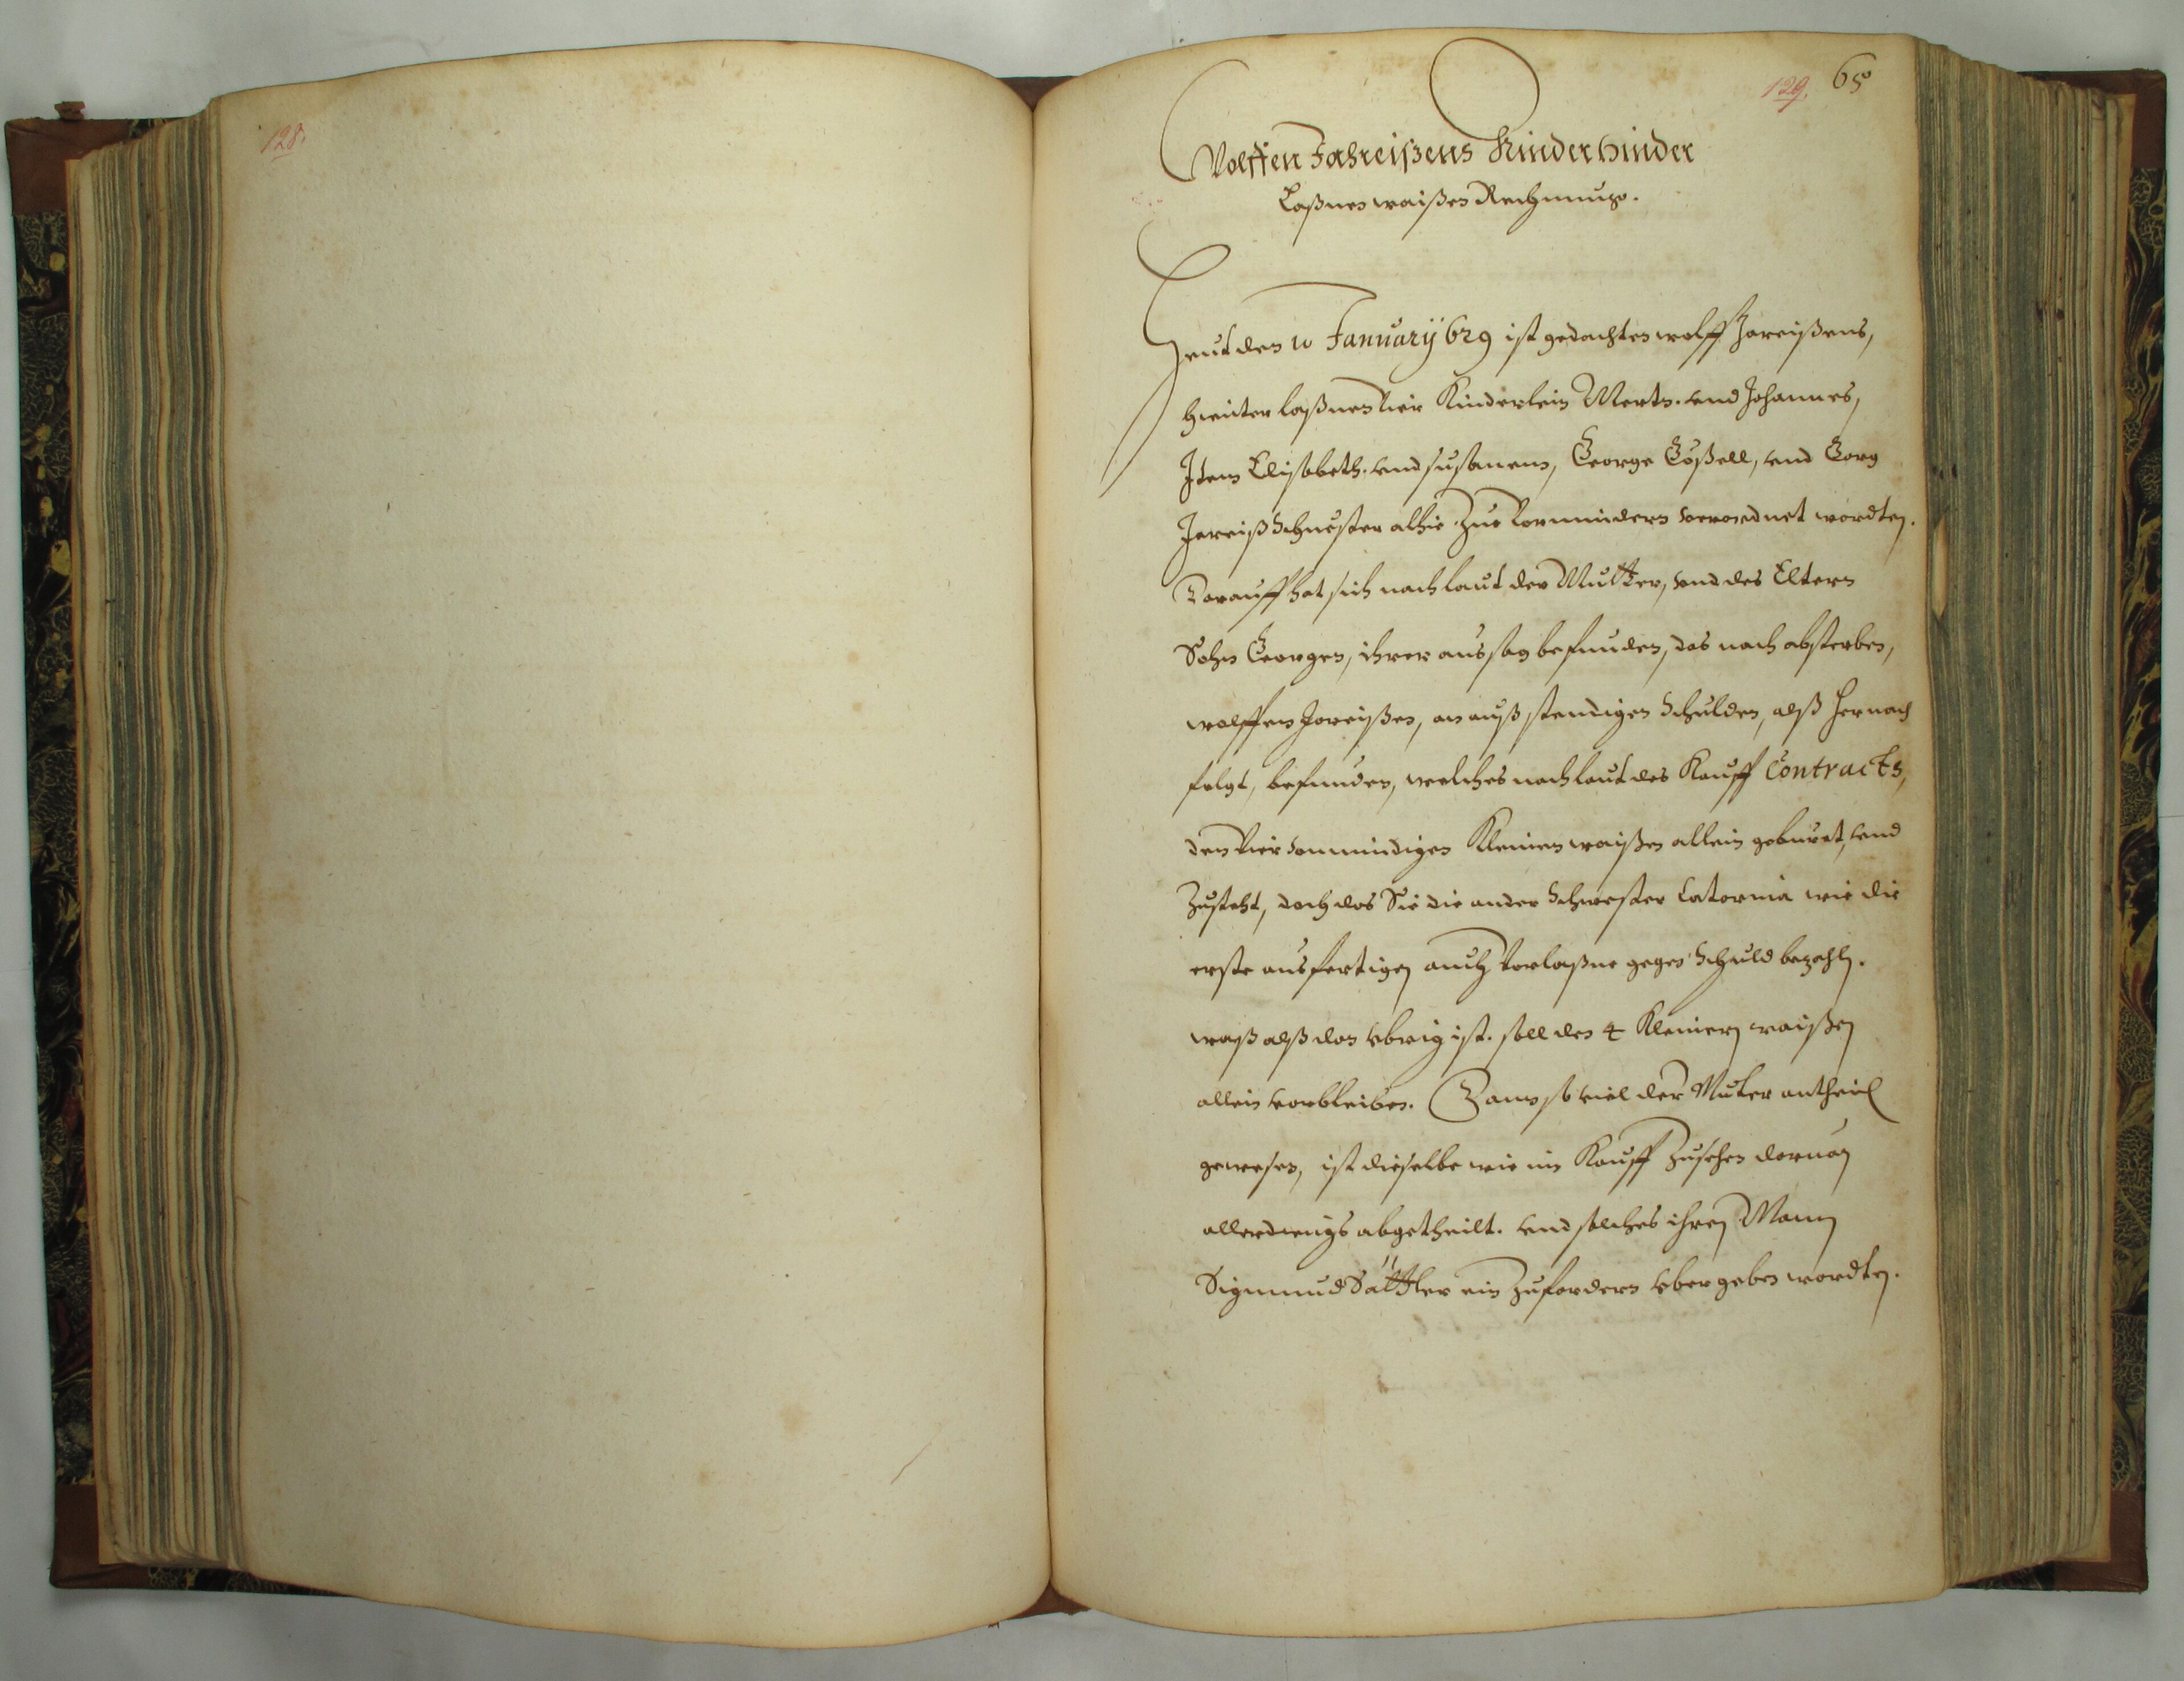 128.
129. 65
Wolffen Jahreißens Kinder hinder
Laßnen waißen Rechnung.
Heut den 10 January 629 ist gedachten wolff Jareißens,
hienterlaßnen vier Kinderlein Mertn. vnd Johannes,
Item Elisabeth. vnd susanna, George Cößell, vnd Georg
Jareiß Schuester alhie zue vormündern verordnet wordten.
Darauff hat sich nach laut der Mutter, vnd des Eltern
Sohn Georgen, ihrer aussag befunden, das nach absterben,
wolffen Jareißen, an außstendigen Schulden, alß hernach
folgt, befunden, welches nach laut des Kauff Contracts,
den vier vnmündigen Kleinen waißen allein geburet, vnd
Zusteht, doch das Sie die ander Schwester Catarina wie die
erste ausfertigen auch verlaßne gegen Schuld bezahln.
waß alß dan vbrig ist. soll den 4 Kleinern waißen
allein verbleiben. so viel der Muter antheil
gewesen, ist dieselbe wie im Kauff Zusehen daruon
allerdings abgetheilt. vnd solches ihren Mann
Sigmund Sattler ein zufordern vbergeben wordten.